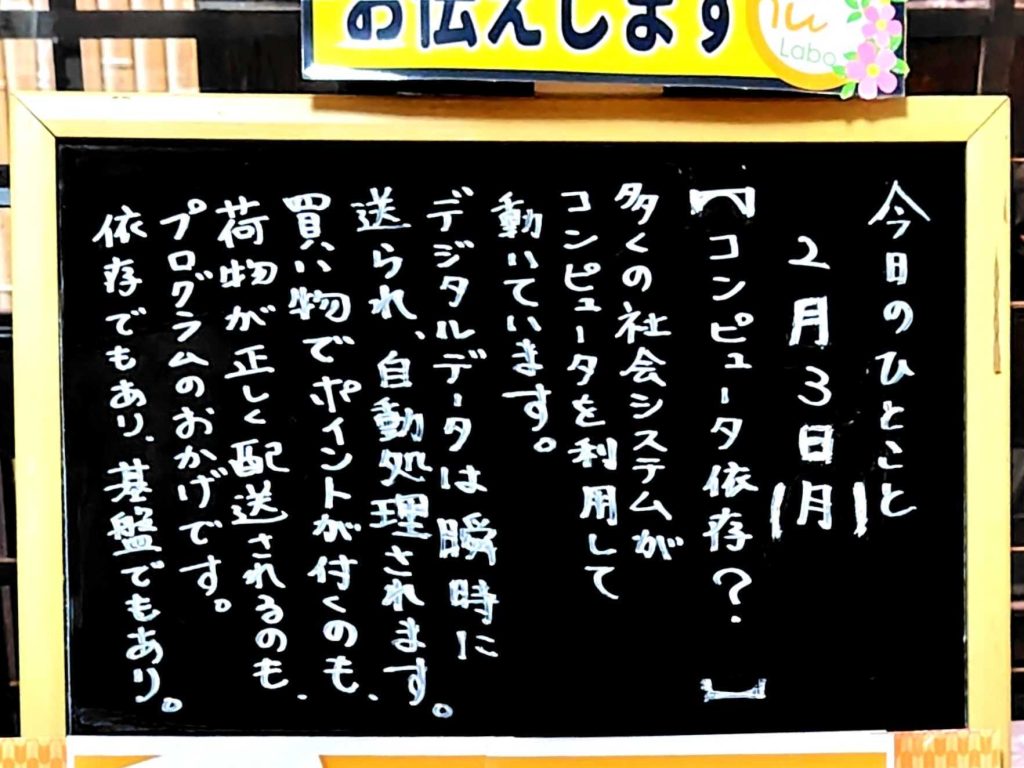 お伝えします
Labo
今日のひとこと
2月3日(月)
【コンピュータ依存?】
多くの社会システムが
コンピュータを利用して
動いています。
デジタルデータは瞬時に
送られ、自動処理されます。
買い物でポイントが付くのも、
荷物が正しく配送されるのも、
プログラムのおかげです。
依存でもあり、基盤でもあり。